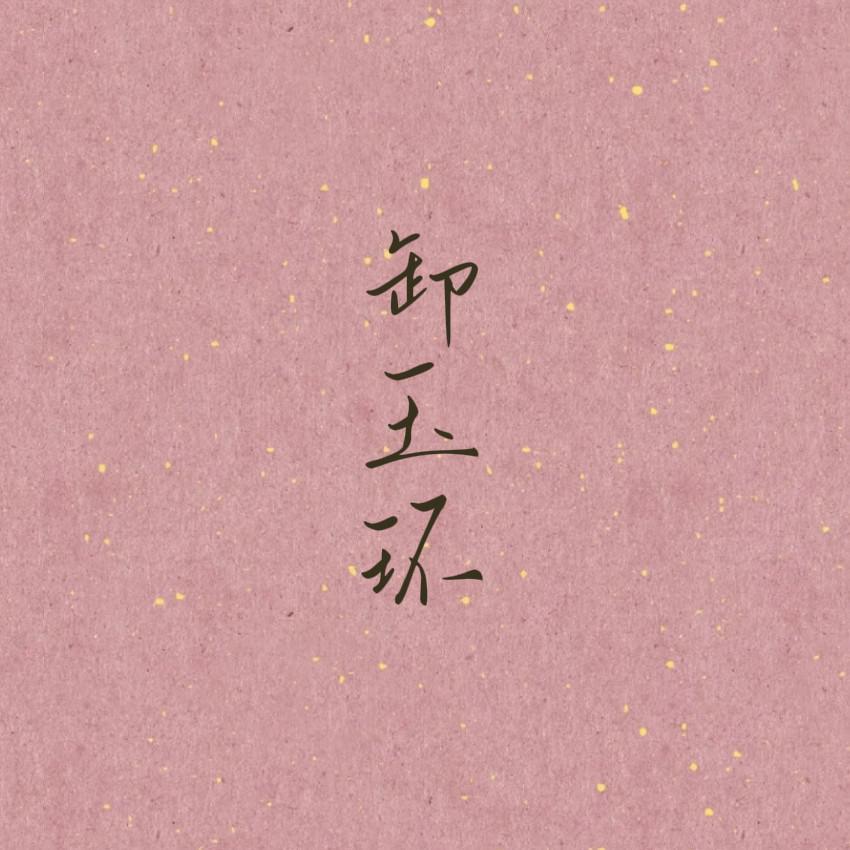 卸玉环